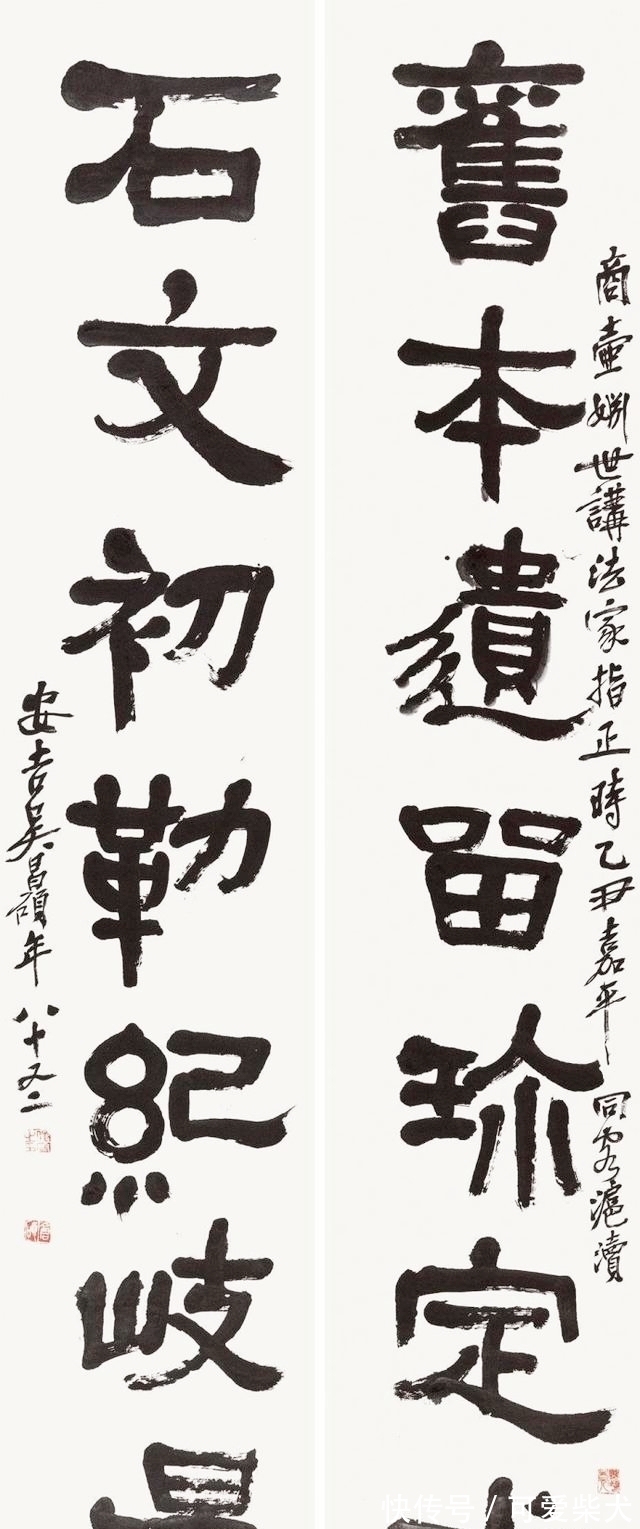 商壺姻世講法家指正時乙丑嘉平同客滬瀆
舊本遺留珍定
石文初勒紀岐
安吉吳昌碩年八十又二
快传号 / 可爱柴犬